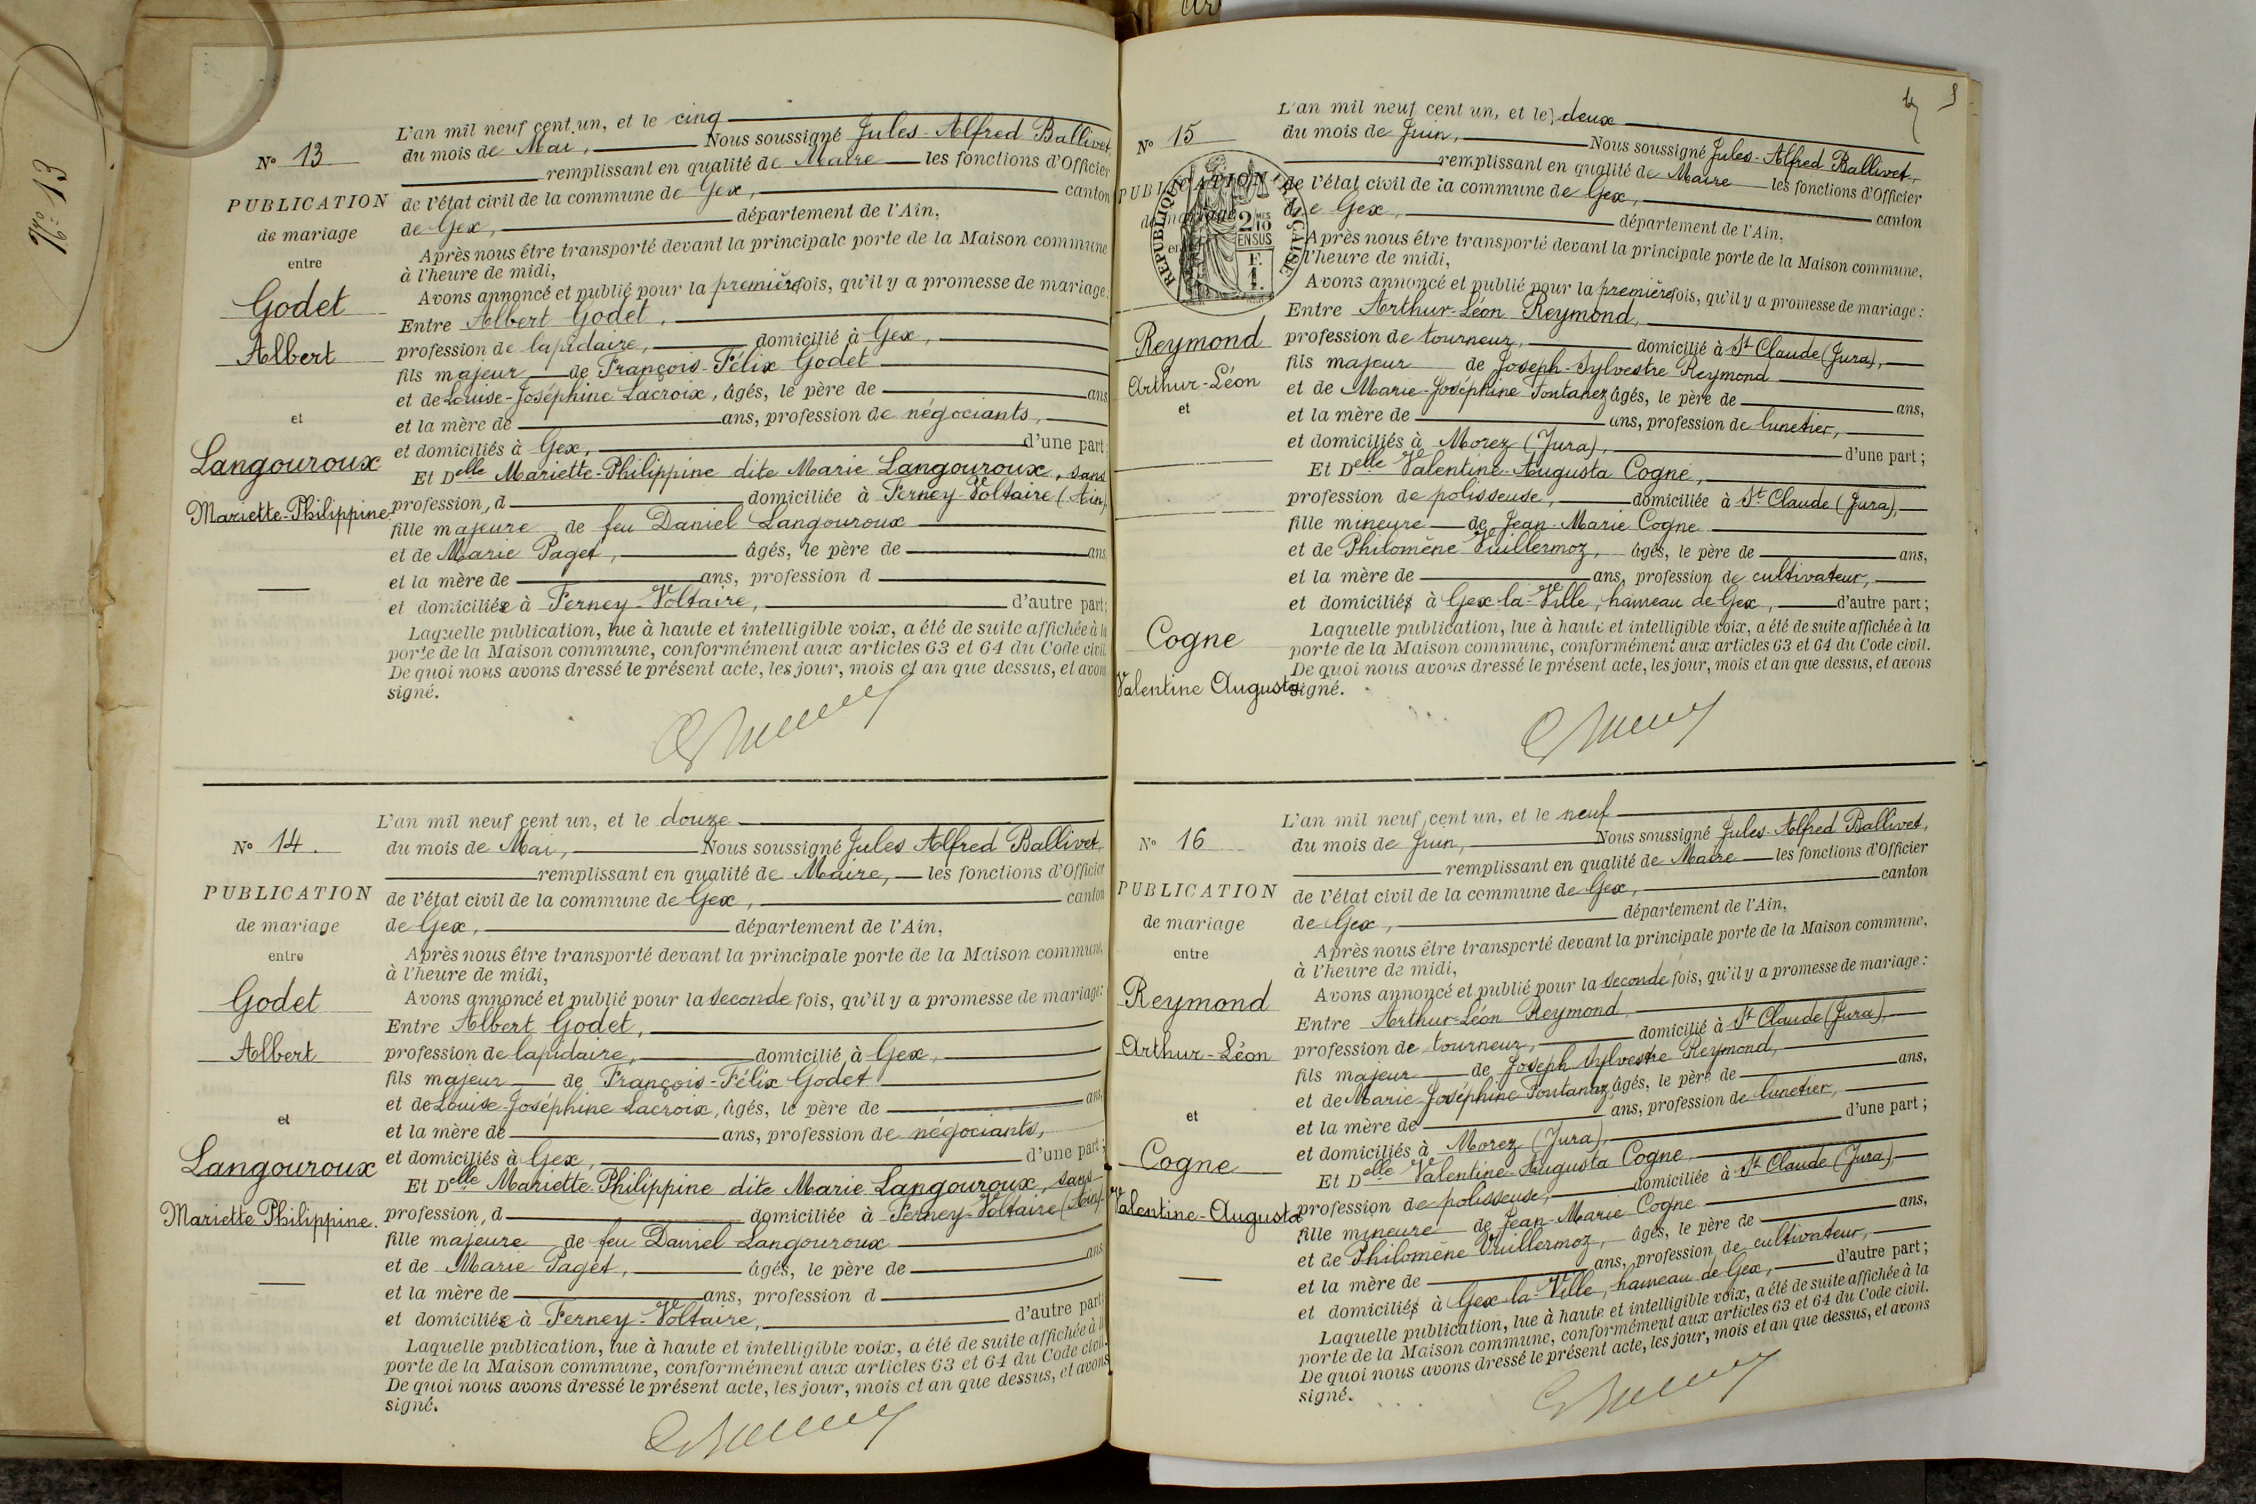 N° 13
N° 13
PUBLICATION
de mariage
entre
Godet
Albert
et
Langouroux
Mariette-Philippine
L'an mil neuf cent un, et le cinq
du mois de Mai, Nous soussigné Jules-Alfred Ballivet,
remplissant en qualité de Maire les fonctions d'Officier
de l'état civil de la commune de Gex, canton
de Gex, département de l'Ain,
Après nous être transporté devant la principale porte de la Maison commune
à l'heure de midi,
Avons annoncé et publié pour la première fois, qu'il y a promesse de mariage:
Entre Albert Godet,
profession de lapidaire, domicilié à Gex,
fils majeur de François-Félix Godet
et de Louise-Joséphine Lacroix, âgés, le père de ans
et la mère de ans, profession de négociants,
et domiciliés à Gex, d'une part;
Et Delle Mariette-Philippine dite Marie Langouroux, sans
profession, d domiciliée à Ferney-Voltaire (Ain),
fille majeure de feu Daniel Langouroux
et de Marie Paget, âgés, le père de ans
et la mère de ans, profession d
et domiciliée à Ferney-Voltaire, d'autre part;
Laquelle publication, lue à haute et intelligible voix, a été de suite affichée à la
porte de la Maison commune, conformément aux articles 63 et 64 du Code civil.
De quoi nous avons dressé le présent acte, les jour, mois et an que dessus, et avons
signé.
N° 14.
PUBLICATION
de mariage
entre
Godet
Albert
et
Langouroux
Mariette Philippine.
L'an mil neuf cent un, et le douze
du mois de Mai, Nous soussigné Jules Alfred Ballivet,
remplissant en qualité de Maire, les fonctions d'Officier
de l'état civil de la commune de Gex, canton
de Gex, département de l'Ain,
Après nous être transporté devant la principale porte de la Maison commune,
à l'heure de midi,
Avons annoncé et publié pour la seconde fois, qu'il y a promesse de mariage:
Entre Albert Godet,
profession de lapidaire, domicilié à Gex,
fils majeur de François-Félix Godet
et de Louise-Joséphine Lacroix, âgés, le père de ans,
et la mère de ans, profession de négociants,
et domiciliés à Gex, d'une part;
Et Delle Mariette-Philippine dite Marie Langouroux, sans
profession, d domiciliée à Ferney-Voltaire (Ain),
fille majeure de feu Daniel Langouroux
et de Marie Paget, âgés, le père de ans
et la mère de ans, profession d
et domiciliée à Ferney-Voltaire, d'autre part;
Laquelle publication, lue à haute et intelligible voix, a été de suite affichée à la
porte de la Maison commune, conformément aux articles 63 et 64 du Code civil.
De quoi nous avons dressé le présent acte, les jour, mois et an que dessus, et avons
signé.
N° 15
PUBLICATION
de mariage
RÉPUBLIQUE FRANÇAISE
2/10 MES
EN SUS
F.
1.
Reymond
Arthur-Léon
et
Cogne
Valentine Augusta
L'an mil neuf cent un, et le deux
du mois de Juin, Nous soussigné Jules-Alfred Ballivet,
remplissant en qualité de Maire les fonctions d'Officier
de l'état civil de la commune de Gex, canton
de Gex, département de l'Ain,
Après nous être transporté devant la principale porte de la Maison commune,
l'heure de midi,
Avons annoncé et publié pour la première fois, qu'il y a promesse de mariage:
Entre Arthur-Léon Reymond,
profession de tourneur, domicilié à St Claude (Jura),
fils majeur de Joseph-Sylvestre Reymond
et de Marie-Joséphine Fontanez âgés, le père de ans,
et la mère de ans, profession de lunetier,
et domiciliés à Morez (Jura), d'une part;
Et Delle Valentine-Augusta Cogne,
profession de polisseuse, domiciliée à St Claude (Jura),
fille mineure de Jean-Marie Cogne
et de Philomène Vuillermoz, âgés, le père de ans,
et la mère de ans, profession de cultivateur,
et domiciliés à Gex-la-Ville, hameau de Gex, d'autre part;
Laquelle publication, lue à haute et intelligible voix, a été de suite affichée à la
porte de la Maison commune, conformément aux articles 63 et 64 du Code civil.
De quoi nous avons dressé le présent acte, les jour, mois et an que dessus, et avons
signé.
N° 16
PUBLICATION
de mariage
entre
Reymond
Arthur-Léon
et
Cogne
Valentine-Augusta
L'an mil neuf cent un, et le neuf
du mois de Juin, Nous soussigné Jules-Alfred Ballivet,
remplissant en qualité de Maire les fonctions d'Officier
de l'état civil de la commune de Gex, canton
de Gex, département de l'Ain,
Après nous être transporté devant la principale porte de la Maison commune,
à l'heure de midi,
Avons annoncé et publié pour la seconde fois, qu'il y a promesse de mariage:
Entre Arthur-Léon Reymond,
profession de tourneur, domicilié à St Claude (Jura),
fils majeur de Joseph Sylvestre Reymond,
et de Marie-Joséphine Fontanaz, âgés, le père de ans,
et la mère de ans, profession de lunetier,
et domiciliés à Morez (Jura), d'une part;
Et Delle Valentine-Augusta Cogne
profession de polisseuse, domiciliée à St Claude (Jura),
fille mineure de Jean-Marie Cogne
et de Philomène Vuillermoz, âgés, le père de ans,
et la mère de ans, profession de cultivateur,
et domiciliés à Gex-la-Ville, hameau de Gex, d'autre part;
Laquelle publication, lue à haute et intelligible voix, a été de suite affichée à la
porte de la Maison commune, conformément aux articles 63 et 64 du Code civil.
De quoi nous avons dressé le présent acte, les jour, mois et an que dessus, et avons
signé.